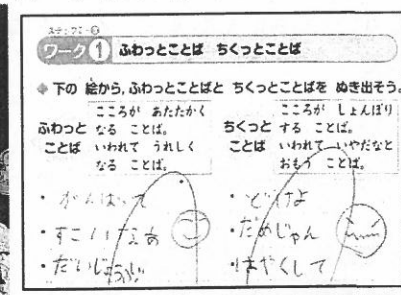 ステップ1-②
ワーク1 ふわっとことば ちくっとことば
◆下の 絵から、ふわっとことばと ちくっとことばを ぬき出そう。
ふわっとことば
こころが あたたかく
なる ことば。
いわれて うれしく
なる ことば。
ちくっとことば
こころが しょんぼり
する ことば。
いわれて いやだなと
おもう ことば。
・がんばって
・すごいなあ
・だいじょうぶ
・どけよ
・だめじゃん
・はやくして